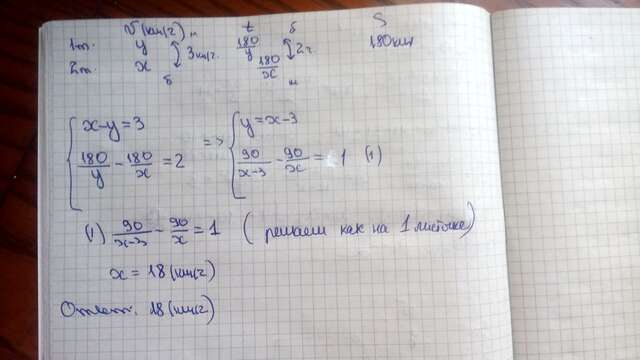 V(км/г) м t б S
1т. y 3км/г. 180/y 2г. 180км
2т. x б 180/x м
{ x-y=3 => { y=x-3
180/y - 180/x = 2 90/x-3 - 90/x = 1 (1)
(1) 90/x-3 - 90/x = 1 (решаем как на 1 листочке)
x = 18 (км/г)
Ответ. 18 (км/г)